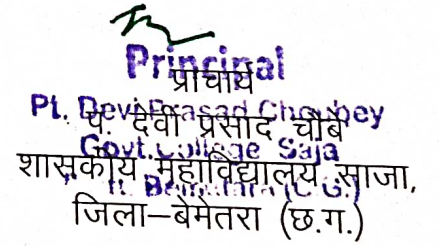 Principal
प्राचार्य
Pt. Devi Prasad Choubey
पं. देवी प्रसाद चौबे
Govt. College Saja
शासकीय महाविद्यालय साजा,
Bemetara (C.G.)
जिला–बेमेतरा (छ.ग.)